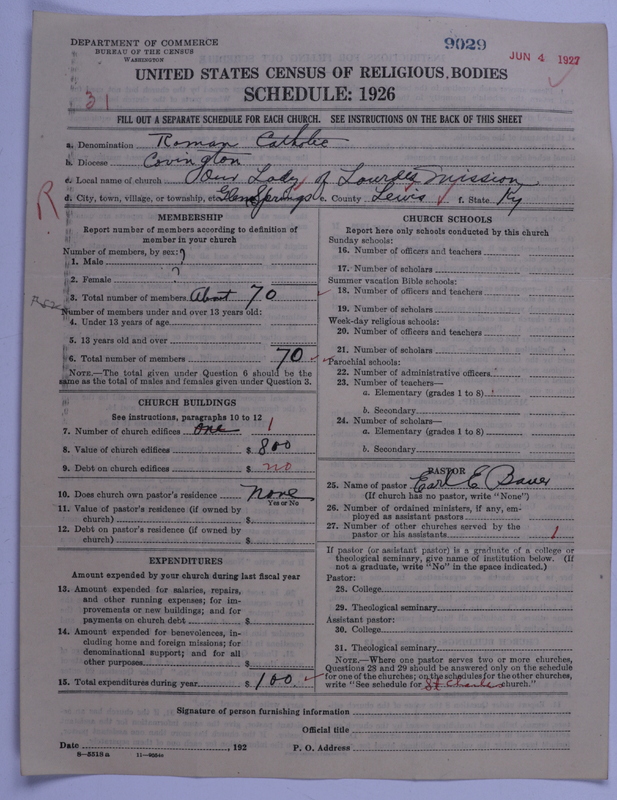 DEPARTMENT OF COMMERCE
BUREAU OF THE CENSUS
WASHINGTON
9029
JUN 4 1927
UNITED STATES CENSUS OF RELIGIOUS BODIES
SCHEDULE: 1926
31
FILL OUT A SEPARATE SCHEDULE FOR EACH CHURCH. SEE INSTRUCTIONS ON THE BACK OF THIS SHEET
a. Denomination Roman Catholic
b. Diocese Covington
c. Local name of church Our Lady of Lourdes Mission
d. City, town, village, or township, etc. Glen Springs e. County Lewis f. State Ky
R
MEMBERSHIP
Report number of members according to definition of
member in your church
Number of members, by sex:
1. Male ?
2. Female ?
3. Total number of members About 70
Number of members under and over 13 years old:
4. Under 13 years of age
5. 13 years old and over
6. Total number of members 70
NOTE.—The total given under Question 6 should be the
same as the total of males and females given under Question 3.
CHURCH BUILDINGS
See instructions, paragraphs 10 to 12
7. Number of church edifices one 1
8. Value of church edifices $ 800
9. Debt on church edifices $ no
10. Does church own pastor's residence none
Yes or No
11. Value of pastor's residence (if owned by
church) $
12. Debt on pastor's residence (if owned by
church) $
EXPENDITURES
Amount expended by your church during last fiscal year
13. Amount expended for salaries, repairs,
and other running expenses; for im-
provements or new buildings; and for
payments on church debt $
14. Amount expended for benevolences, in-
cluding home and foreign missions; for
denominational support; and for all
other purposes $
15. Total expenditures during year $ 100
CHURCH SCHOOLS
Report here only schools conducted by this church
Sunday schools:
16. Number of officers and teachers
17. Number of scholars
Summer vacation Bible schools:
18. Number of officers and teachers
19. Number of scholars
Week-day religious schools:
20. Number of officers and teachers
21. Number of scholars
Parochial schools:
22. Number of administrative officers
23. Number of teachers—
a. Elementary (grades 1 to 8)
b. Secondary
24. Number of scholars—
a. Elementary (grades 1 to 8)
b. Secondary
PASTOR
25. Name of pastor Earl E Bauer
(If church has no pastor, write "None")
26. Number of ordained ministers, if any, em-
ployed as assistant pastors
27. Number of other churches served by the
pastor or his assistants 1
If pastor (or assistant pastor) is a graduate of a college or
theological seminary, give name of institution below. (If
not a graduate, write "No" in the space indicated.)
Pastor:
28. College
29. Theological seminary
Assistant pastor:
30. College
31. Theological seminary
NOTE.—Where one pastor serves two or more churches,
Questions 28 and 29 should be answered only on the schedule
for one of the churches; on the schedules for the other churches,
write "See schedule for St Charles church."
Signature of person furnishing information
Official title
Date , 192 P. O. Address
8—5518a